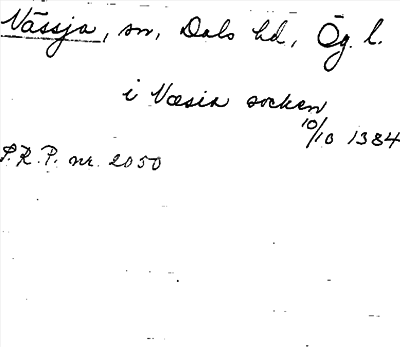 Vässja, sn, Dals hd, Ög. l.
i Væsia socken
10/10 1384
S.R.P. nr. 2050